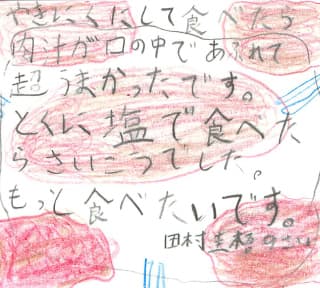 やきにくにして食べたら
肉汁が口の中であふれて
超うまかったです。
とくに塩で食べた
らさいこうでした。
もっと食べたいです。
田村 9さい